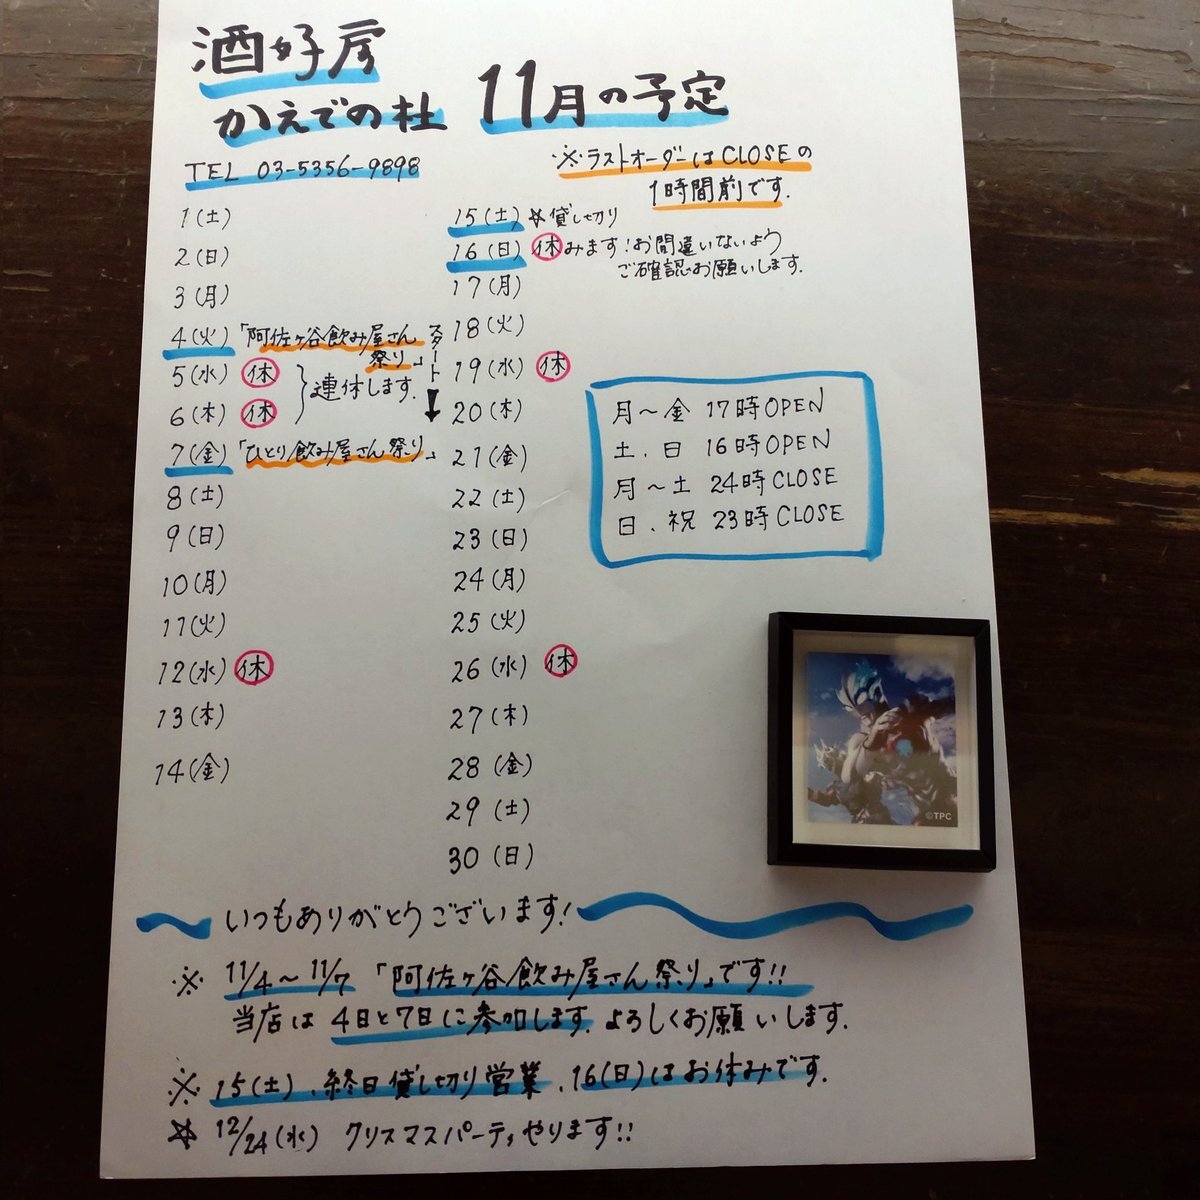 酒好房
かえでの杜 11月の予定
TEL 03-5356-9898
※ラストオーダーはCLOSEの
1時間前です.
1(土)
2(日)
3(月)
4(火)「阿佐ヶ谷飲み屋さん
祭り」スタート
5(水) 休
6(木) 休
連休します.
7(金)「ひとり飲み屋さん祭り」
8(土)
9(日)
10(月)
11(火)
12(水) 休
13(木)
14(金)
15(土) ☆貸し切り
16(日) 休みます!お間違いないよう
ご確認お願いします.
17(月)
18(火)
19(水) 休
20(木)
21(金)
22(土)
23(日)
24(月)
25(火)
26(水) 休
27(木)
28(金)
29(土)
30(日)
月〜金 17時OPEN
土.日 16時OPEN
月〜土 24時CLOSE
日.祝 23時CLOSE
©TPC
〜いつもありがとうございます!
※ 11/4〜11/7「阿佐ヶ谷飲み屋さん祭り」です!!
当店は4日と7日に参加します.よろしくお願いします.
※ 15(土).終日貸し切り営業.16(日)はお休みです.
☆ 12/24(水) クリスマスパーティやります!!